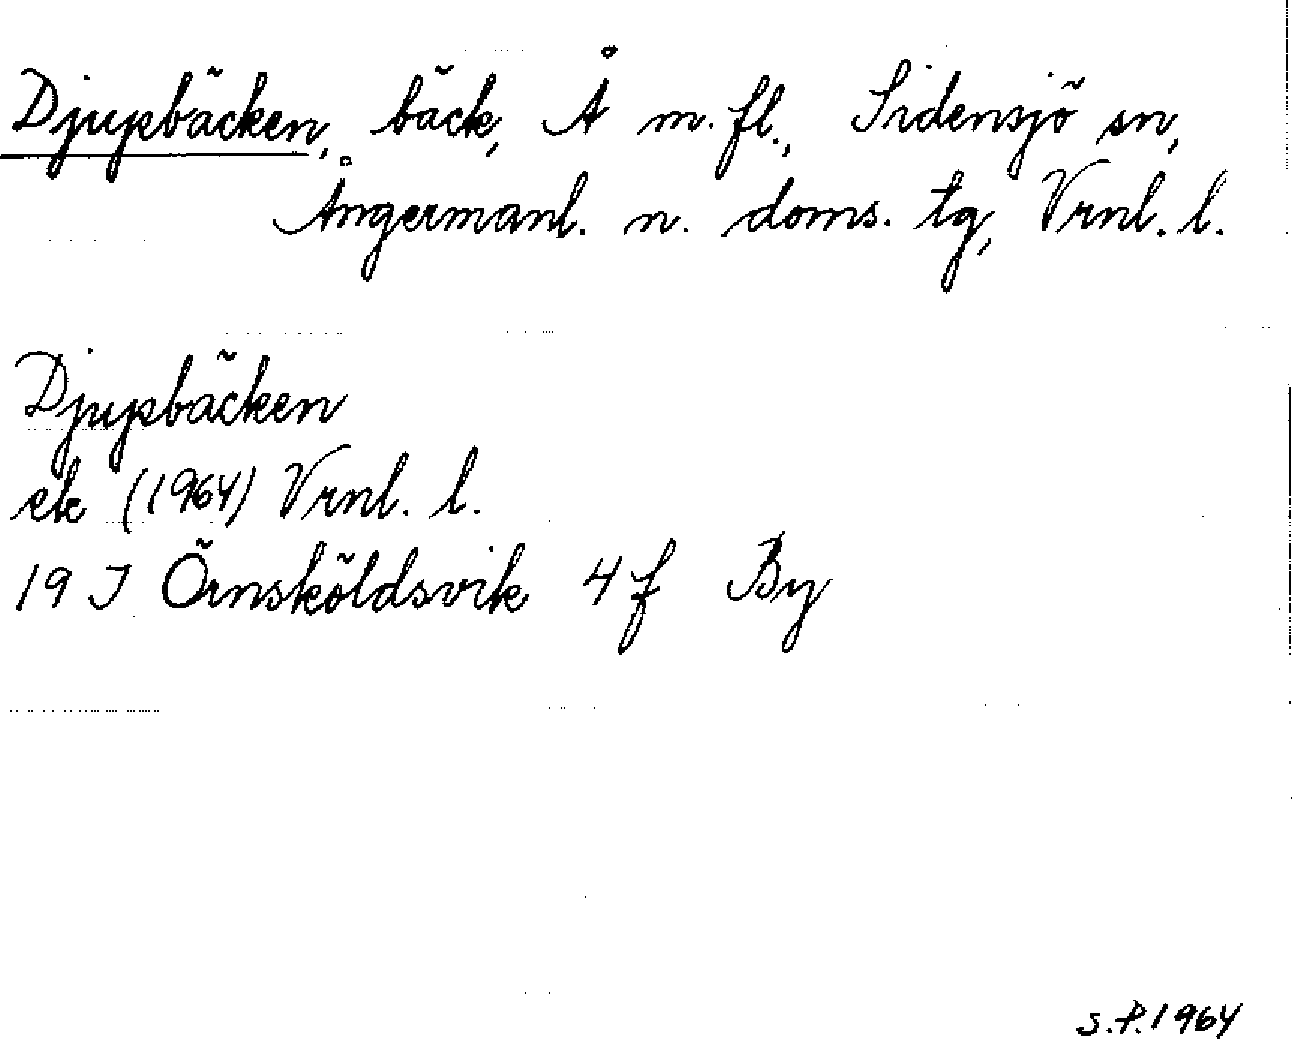 Djupbäcken, bäck, Å m. fl., Sidensjö sn,
Ångermanl. n. doms. tg, Vrnl. l.
Djupbäcken
ek (1964) Vrnl. l.
19 J Örnsköldsvik 4 f By
S.P. 1964